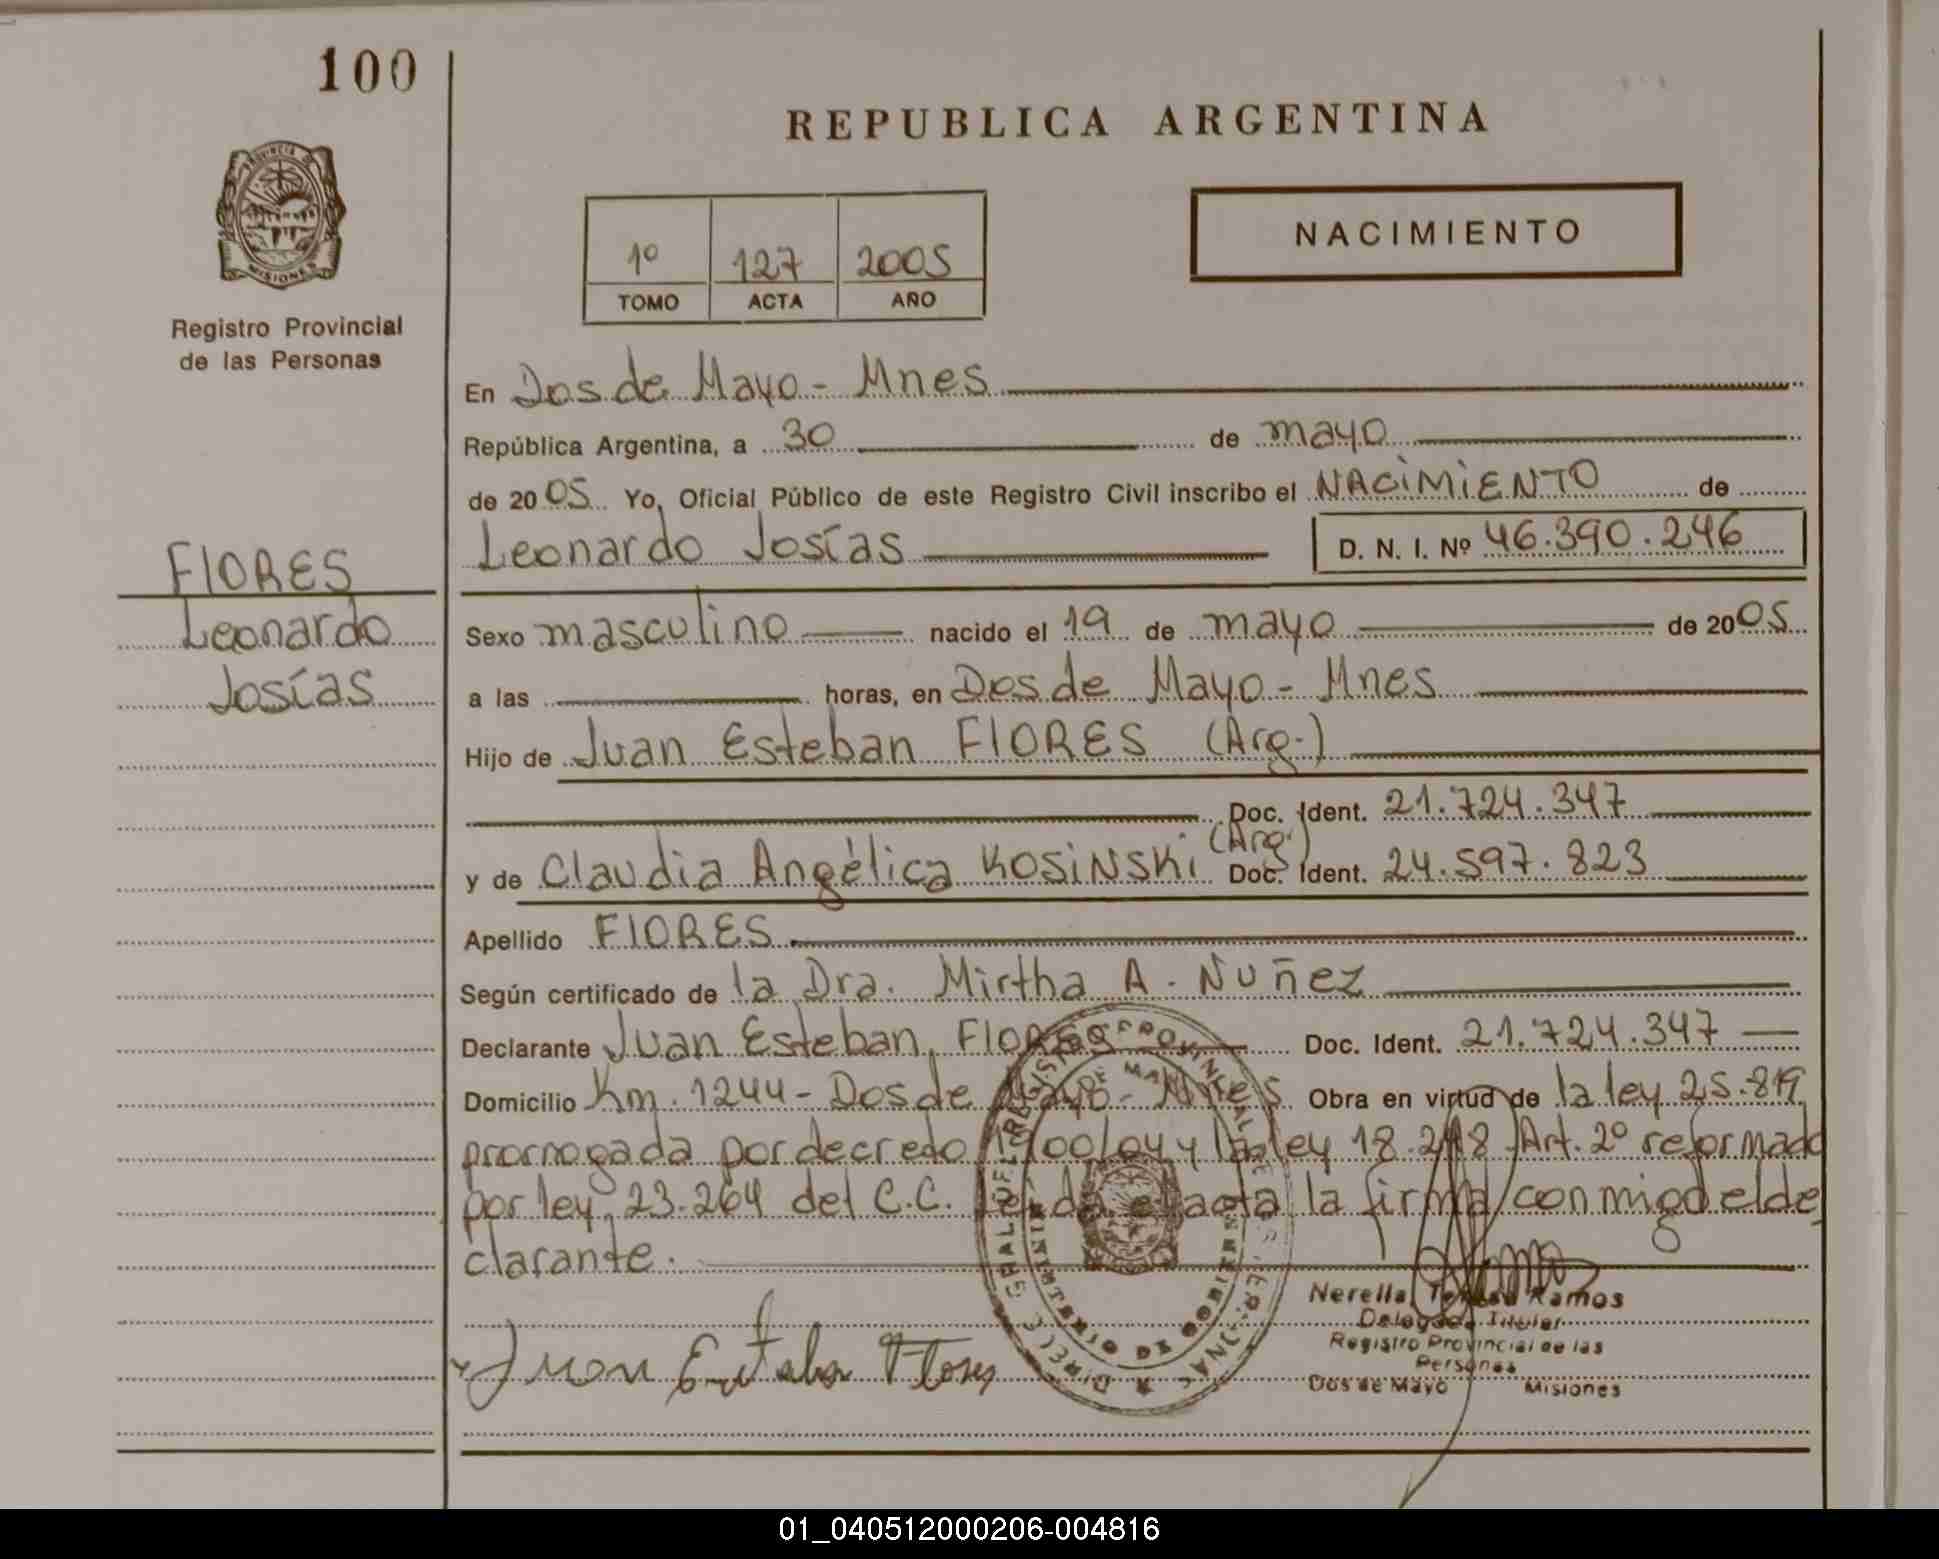 100
REPUBLICA ARGENTINA
PROVINCIA DE
MISIONES
Registro Provincial
de las Personas
1º 127 2005
TOMO ACTA AÑO
NACIMIENTO
En Dos de Mayo - Mnes
República Argentina, a 30 de mayo
de 2005 Yo, Oficial Público de este Registro Civil inscribo el NACIMIENTO de
Leonardo Josías D. N. I. Nº 46.390.246
FLORES
Leonardo
Josías
Sexo masculino nacido el 19 de mayo de 2005
a las horas, en Dos de Mayo - Mnes
Hijo de Juan Esteban FLORES (Arg.)
Doc. Ident. 21.724.347
y de Claudia Angélica KOSINSKI (Arg.) Doc. Ident. 24.597.823
Apellido FLORES
Según certificado de la Dra. Mirtha A. Nuñez
Declarante Juan Esteban FLORES Doc. Ident. 21.724.347
Domicilio Km. 1244 - Dos de Mayo - Mnes Obra en virtud de la ley 25.819
prorrogada por decreto y la ley 18.248 Art. 2º reformado
por ley 23.264 del C.C. Leída el acta la firma conmigo el de
clarante.
Juan Esteban Flores
Nerella Ramos
Delegada Titular
Registro Provincial de las
Personas
Dos de Mayo Misiones
01_040512000206-004816